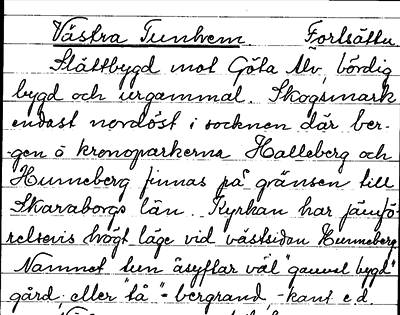 Västra Tunhem Fortsättn
Slättbygd mot Göta Älv, bördig
bygd och urgammal. Skogsmark
endast nordöst i socknen där ber-
gen o kronoparkerna Halleberg och
Hunneberg finnas på gränsen till
Skaraborgs län. Kyrkan har jämfö-
relsevis högt läge vid västsidan Hunneberg
Namnet tun åsyftar väl "gammal bygd"
gård, eller "tå" - bergrand, -kant e.d.